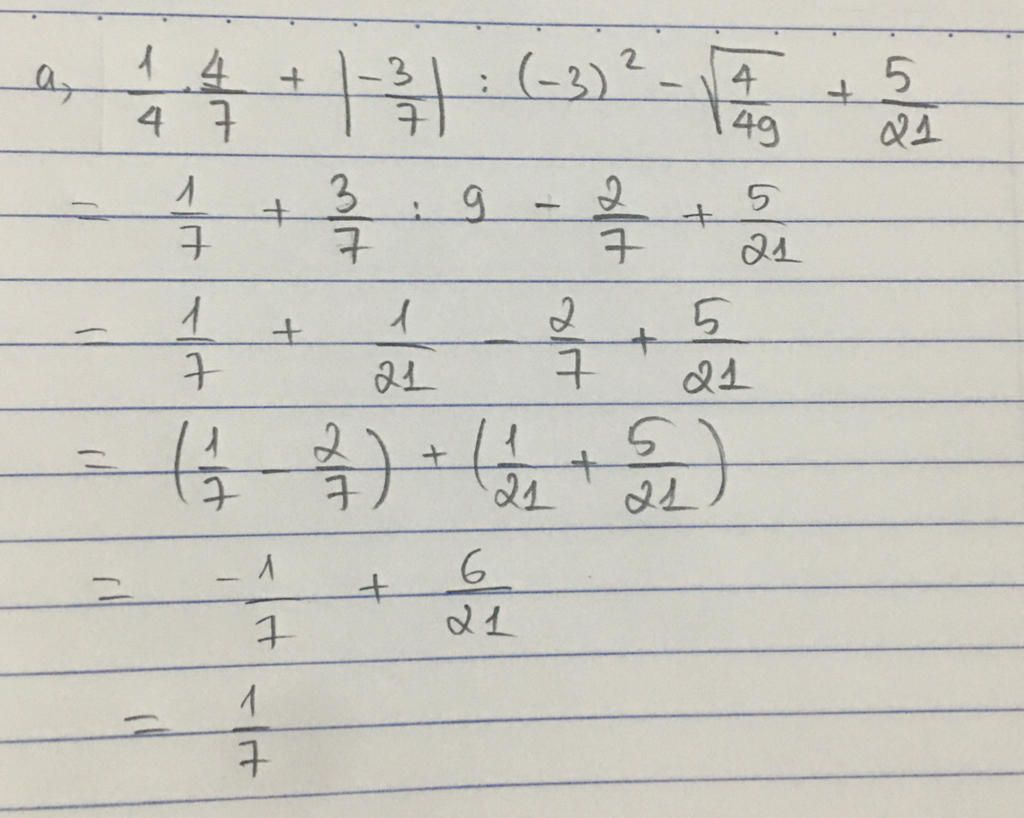 a, 1/4 . 4/7 + |-3/7| : (-3)² - √(4/49) + 5/21
= 1/7 + 3/7 : 9 - 2/7 + 5/21
= 1/7 + 1/21 - 2/7 + 5/21
= (1/7 - 2/7) + (1/21 + 5/21)
= -1/7 + 6/21
= 1/7